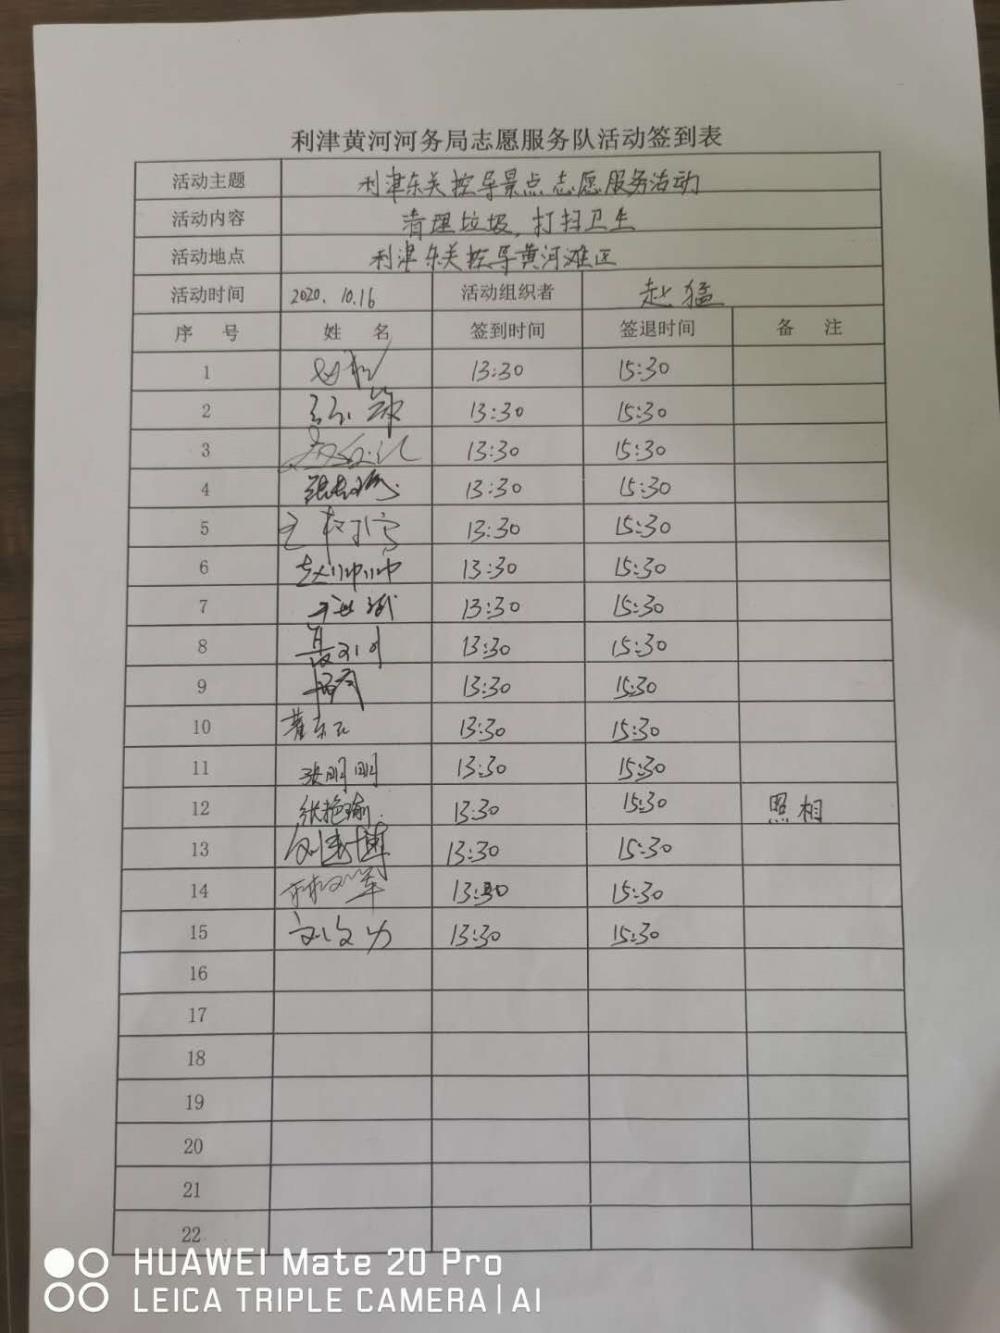 利津黄河河务局志愿服务队活动签到表
活动主题 利津东关控导景点志愿服务活动
活动内容 清理垃圾,打扫卫生
活动地点 利津东关控导黄河滩区
活动时间 2020.10.16 活动组织者 赵猛
序号 姓名 签到时间 签退时间 备注
1 13:30 15:30
2 13:30 15:30
3 13:30 15:30
4 13:30 15:30
5 13:30 15:30
6 赵帅帅 13:30 15:30
7 13:30 15:30
8 13:30 15:30
9 13:30 15:30
10 13:30 15:30
11 张明明 13:30 15:30
12 张艳瑜 13:30 15:30 照相
13 13:30 15:30
14 13:30 15:30
15 刘文力 13:30 15:30
16
17
18
19
20
21
22
HUAWEI Mate 20 Pro
LEICA TRIPLE CAMERA | AI